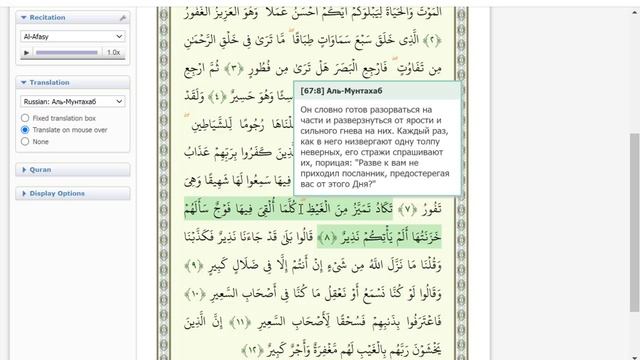 Recitation
Al-Afasy
1.0x
Translation
Russian: Аль-Мунтахаб
Fixed translation box
Translate on mouse over
None
Quran
Display Options
ٱلْمَوْتَ وَٱلْحَيَوٰةَ لِيَبْلُوَكُمْ أَيُّكُمْ أَحْسَنُ عَمَلًا ۚ وَهُوَ ٱلْعَزِيزُ ٱلْغَفُورُ
﴿٢﴾ ٱلَّذِى خَلَقَ سَبْعَ سَمَاوَاتٍ طِبَاقًا ۖ مَّا تَرَىٰ فِى خَلْقِ ٱلرَّحْمَٰنِ
مِن تَفَاوُتٍ ۖ فَٱرْجِعِ ٱلْبَصَرَ هَلْ تَرَىٰ مِن فُطُورٍ ﴿٣﴾ ثُمَّ ٱرْجِعِ
وَهُوَ حَسِيرٌ ﴿٤﴾ وَلَقَدْ
رُجُومًا لِّلشَّيَاطِينِ ۖ
كَفَرُوا۟ بِرَبِّهِمْ عَذَابُ
فِيهَا سَمِعُوا۟ لَهَا شَهِيقًا وَهِىَ
[67:8] Аль-Мунтахаб
Он словно готов разорваться на
части и разверзнуться от ярости и
сильного гнева на них. Каждый раз,
как в него низвергают одну толпу
неверных, его стражи спрашивают
их, порицая: "Разве к вам не
приходил посланник, предостерегая
вас от этого Дня?"
تَفُورُ ﴿٧﴾ تَكَادُ تَمَيَّزُ مِنَ ٱلْغَيْظِ ۖ كُلَّمَآ أُلْقِىَ فِيهَا فَوْجٌ سَأَلَهُمْ
خَزَنَتُهَآ أَلَمْ يَأْتِكُمْ نَذِيرٌ ﴿٨﴾ قَالُوا۟ بَلَىٰ قَدْ جَآءَنَا نَذِيرٌ فَكَذَّبْنَا
وَقُلْنَا مَا نَزَّلَ ٱللَّهُ مِن شَىْءٍ إِنْ أَنتُمْ إِلَّا فِى ضَلَٰلٍ كَبِيرٍ ﴿٩﴾
وَقَالُوا۟ لَوْ كُنَّا نَسْمَعُ أَوْ نَعْقِلُ مَا كُنَّا فِىٓ أَصْحَٰبِ ٱلسَّعِيرِ ﴿١٠﴾
فَٱعْتَرَفُوا۟ بِذَنۢبِهِمْ فَسُحْقًا لِّأَصْحَٰبِ ٱلسَّعِيرِ ﴿١١﴾ إِنَّ ٱلَّذِينَ
يَخْشَوْنَ رَبَّهُم بِٱلْغَيْبِ لَهُم مَّغْفِرَةٌ وَأَجْرٌ كَبِيرٌ ﴿١٢﴾